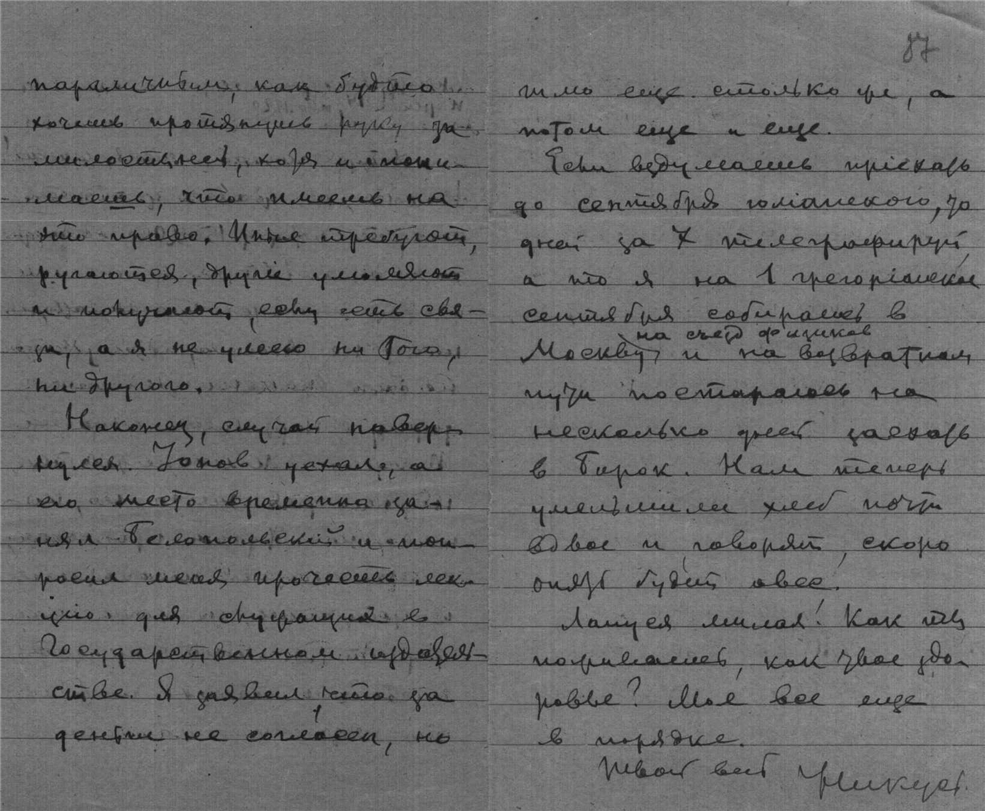 как будто
хочешь протянуть руку за
милостыней, хотя и пони-
маешь, что имеешь на
это право. Иные требуют,
ругаются, другие умоляют
и получают, если есть свя-
зи, а я не умею ни того,
ни другого.
Наконец, случай повер-
нулся. Ионов уехал, а
его место временно за-
нял Белопольский и поп-
росил меня прочесть лек-
цию для служащих в
Государственном издатель-
стве. Я заявил что за
деньги не согласен, но
87
еще столько же, а
потом еще и еще.
Если вздумаешь приехать
до сентября юлианского, то
дней за 7 телеграфируй,
а то я на 1 грегорианское
сентября собираюсь в
на съезд физиков
Москву и на возвратном
пути постараюсь на
несколько дней заехать
в Борок. Нам теперь
уменьшили хлеб почти
вдвое и, говорят, скоро
опять будет овес.
Лапуся милая! Как ты
поживаешь, как твое здо-
ровье? Мое все еще
в порядке.
Твой весь